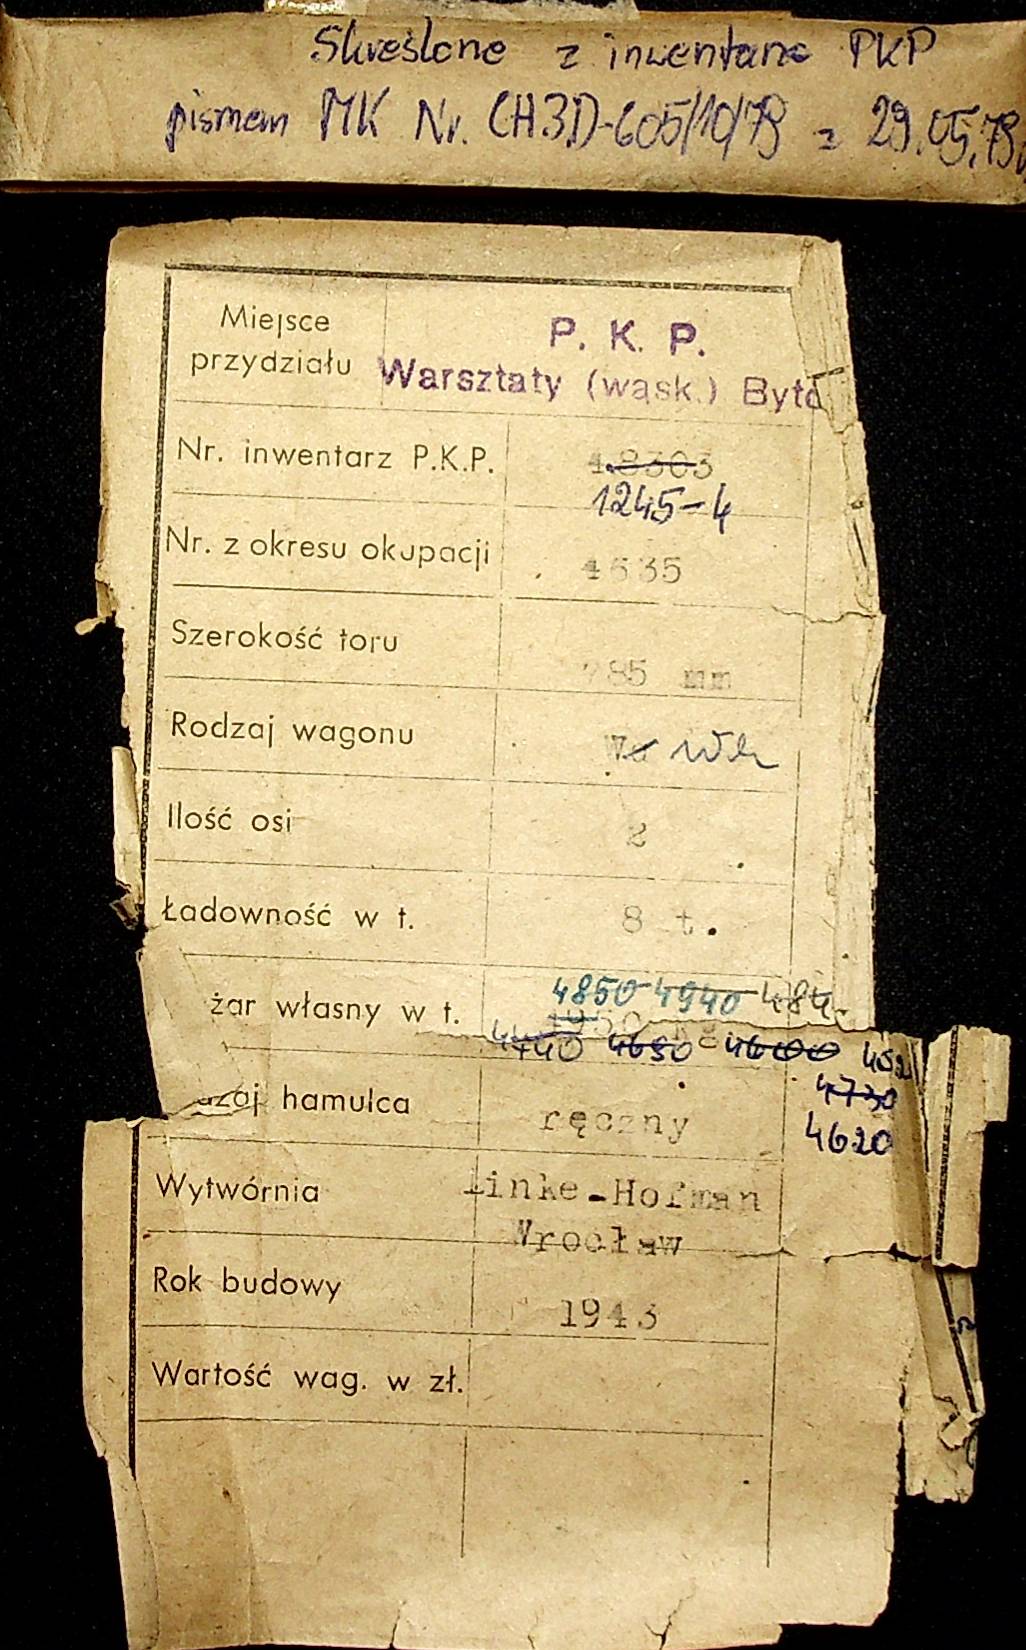 Skreślone z inwentarza PKP
pismem MK Nr. CH3D-605/10/79 z 29.05.79
Miejsce
przydziału
P. K. P.
Warsztaty (wąsk.) Byto
Nr. inwentarz P.K.P.
48303
1245-4
Nr. z okresu okupacji
4535
Szerokość toru
785 mm
Rodzaj wagonu
Ilość osi
2
Ładowność w t.
8 t.
żar własny w t.
4850 4940 484
4740 4650 4600
4730
dzaj hamulca
ręczny
4620
Wytwórnia
Linke-Hofman
Wrocław
Rok budowy
1943
Wartość wag. w zł.